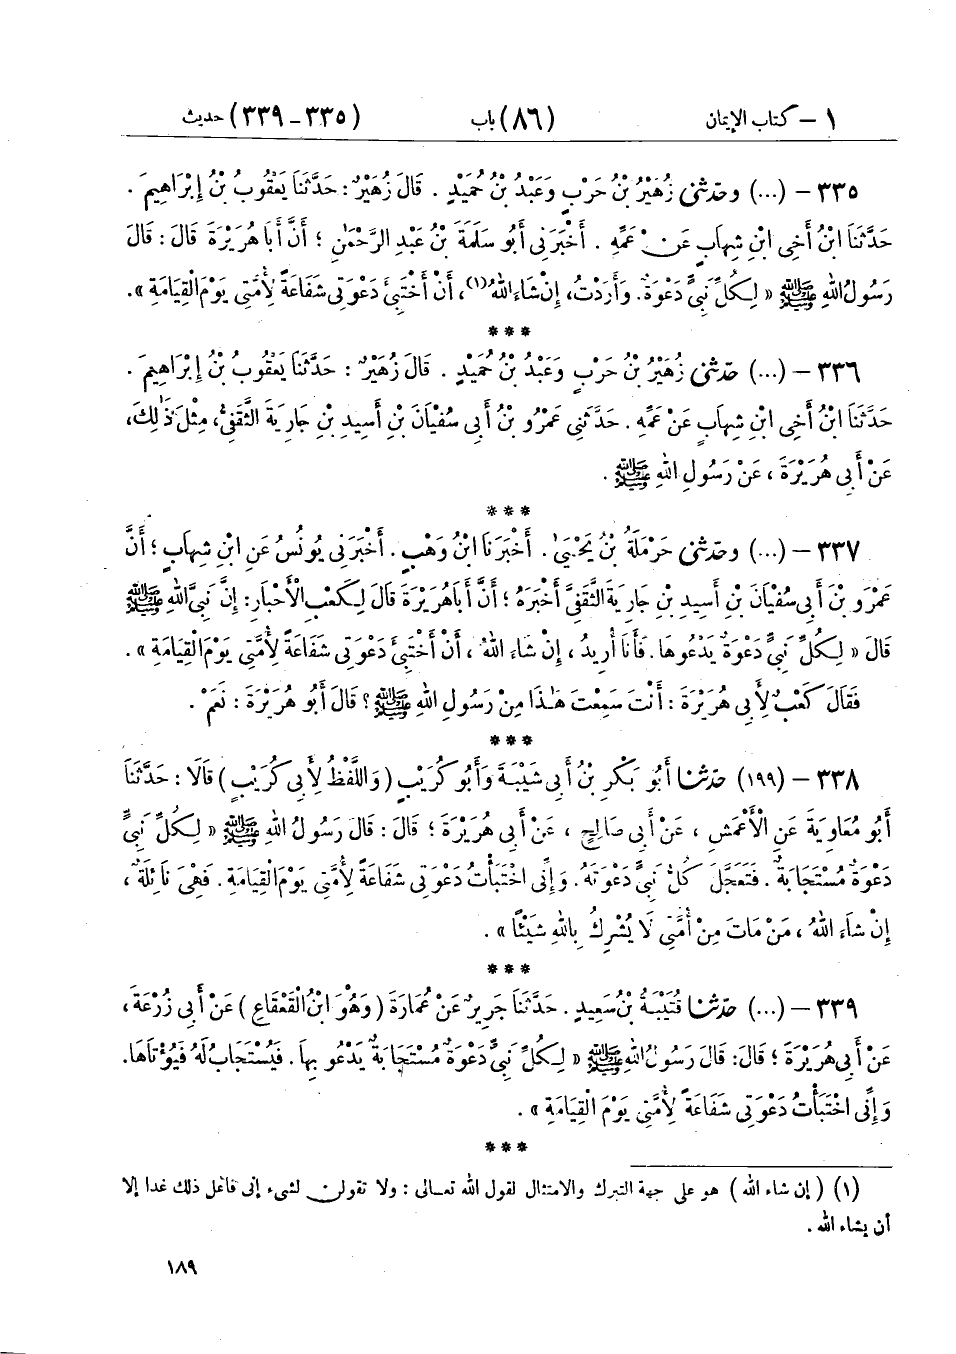 ١ – كتاب الإيمان (٨٦) باب (٣٣٥ – ٣٣٩) حديث
٣٣٥ – (...) وحدثنى زُهَيْرُ بْنُ حَرْبٍ وَعَبْدُ بْنُ حُمَيْدٍ . قَالَ زُهَيْرٌ : حَدَّثَنَا يَعْقُوبُ بْنُ إِبْرَاهِيمَ .
حَدَّثَنَا ابْنُ أَخِى ابْنِ شِهَابٍ عَنْ عَمِّهِ . أَخْبَرَنِى أَبُو سَلَمَةَ بْنُ عَبْدِ الرَّحْمٰنِ ؛ أَنَّ أَبَا هُرَيْرَةَ قَالَ : قَالَ
رَسُولُ اللهِ ﷺ « لِكُلِّ نَبِىٍّ دَعْوَةٌ . وَأَرَدْتُ، إِنْ شَاءَ اللهُ(١)، أَنْ أَخْتَبِئَ دَعْوَتِى شَفَاعَةً لِأُمَّتِى يَوْمَ الْقِيَامَةِ ».
***
٣٣٦ – (...) حدثنى زُهَيْرُ بْنُ حَرْبٍ وَعَبْدُ بْنُ حُمَيْدٍ . قَالَ زُهَيْرٌ : حَدَّثَنَا يَعْقُوبُ بْنُ إِبْرَاهِيمَ .
حَدَّثَنَا ابْنُ أَخِى ابْنِ شِهَابٍ عَنْ عَمِّهِ . حَدَّثَنِى عَمْرُو بْنُ أَبِى سُفْيَانَ بْنِ أَسِيدِ بْنِ جَارِيَةَ الثَّقَفِىُّ، مِثْلَ ذَٰلِكَ،
عَنْ أَبِى هُرَيْرَةَ ، عَنْ رَسُولِ اللهِ ﷺ .
***
٣٣٧ – (...) وحدثنى حَرْمَلَةُ بْنُ يَحْيَىٰ . أَخْبَرَنَا ابْنُ وَهْبٍ . أَخْبَرَنِى يُونُسُ عَنِ ابْنِ شِهَابٍ ؛ أَنَّ
عَمْرَو بْنَ أَبِى سُفْيَانَ بْنِ أَسِيدِ بْنِ جَارِيَةَ الثَّقَفِىَّ أَخْبَرَهُ ؛ أَنَّ أَبَا هُرَيْرَةَ قَالَ لِكَعْبِ الْأَحْبَارِ : إِنَّ نَبِىَّ اللهِ ﷺ
قَالَ « لِكُلِّ نَبِىٍّ دَعْوَةٌ يَدْعُوهَا . فَأَنَا أُرِيدُ ، إِنْ شَاءَ اللهُ ، أَنْ أَخْتَبِئَ دَعْوَتِى شَفَاعَةً لِأُمَّتِى يَوْمَ الْقِيَامَةِ » .
فَقَالَ كَعْبٌ لِأَبِى هُرَيْرَةَ : أَنْتَ سَمِعْتَ هَٰذَا مِنْ رَسُولِ اللهِ ﷺ ؟ قَالَ أَبُو هُرَيْرَةَ : نَعَمْ .
***
٣٣٨ – (١٩٩) حدثنا أَبُو بَكْرِ بْنُ أَبِى شَيْبَةَ وَأَبُو كُرَيْبٍ ( وَاللَّفْظُ لِأَبِى كُرَيْبٍ ) قَالَا : حَدَّثَنَا
أَبُو مُعَاوِيَةَ عَنِ الْأَعْمَشِ ، عَنْ أَبِى صَالِحٍ ، عَنْ أَبِى هُرَيْرَةَ ؛ قَالَ : قَالَ رَسُولُ اللهِ ﷺ « لِكُلِّ نَبِىٍّ
دَعْوَةٌ مُسْتَجَابَةٌ . فَتَعَجَّلَ كُلُّ نَبِىٍّ دَعْوَتَهُ . وَإِنِّى اخْتَبَأْتُ دَعْوَتِى شَفَاعَةً لِأُمَّتِى يَوْمَ الْقِيَامَةِ . فَهِىَ نَائِلَةٌ ،
إِنْ شَاءَ اللهُ ، مَنْ مَاتَ مِنْ أُمَّتِى لَا يُشْرِكُ بِاللهِ شَيْئًا » .
***
٣٣٩ – (...) حدثنا قُتَيْبَةُ بْنُ سَعِيدٍ . حَدَّثَنَا جَرِيرٌ عَنْ عُمَارَةَ ( وَهُوَ ابْنُ الْقَعْقَاعِ ) عَنْ أَبِى زُرْعَةَ ،
عَنْ أَبِى هُرَيْرَةَ ؛ قَالَ : قَالَ رَسُولُ اللهِ ﷺ « لِكُلِّ نَبِىٍّ دَعْوَةٌ مُسْتَجَابَةٌ يَدْعُو بِهَا . فَيُسْتَجَابُ لَهُ فَيُؤْتَاهَا.
وَإِنِّى اخْتَبَأْتُ دَعْوَتِى شَفَاعَةً لِأُمَّتِى يَوْمَ الْقِيَامَةِ » .
***
(١) ( إن شاء الله ) هو على جهة التبرك والامتثال لقول الله تعالى : ولا تقولن لشىء إنى فاعل ذلك غدا إلا
أن يشاء الله .
١٨٩